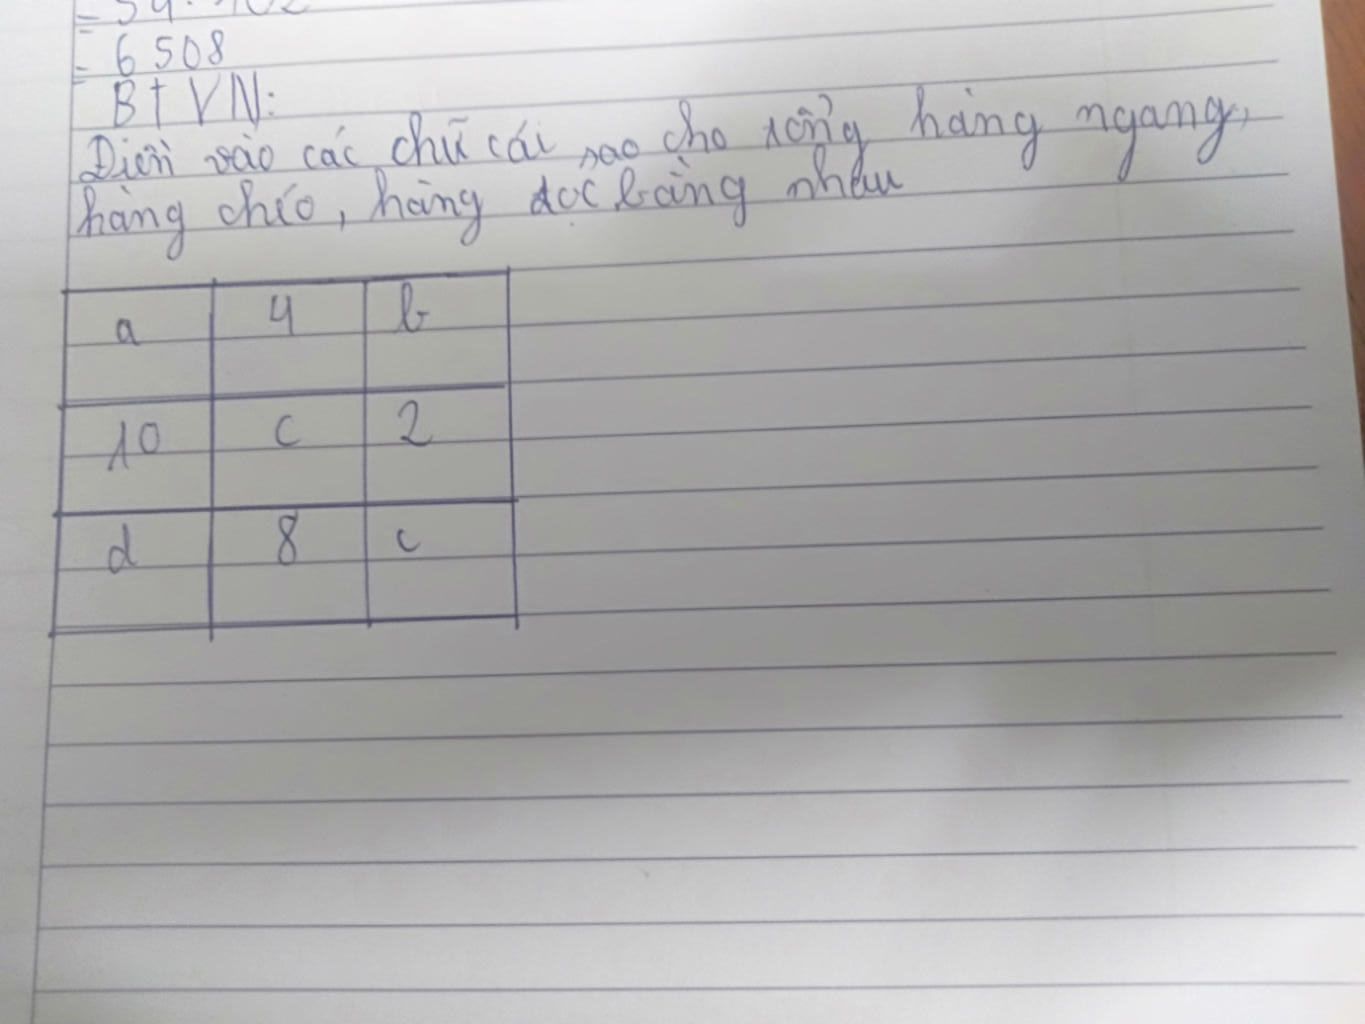 = 6508
BTVN:
Điền vào các chữ cái sao cho tổng hàng ngang,
hàng chéo, hàng dọc bằng nhau
a 4 b
10 c 2
d 8 c